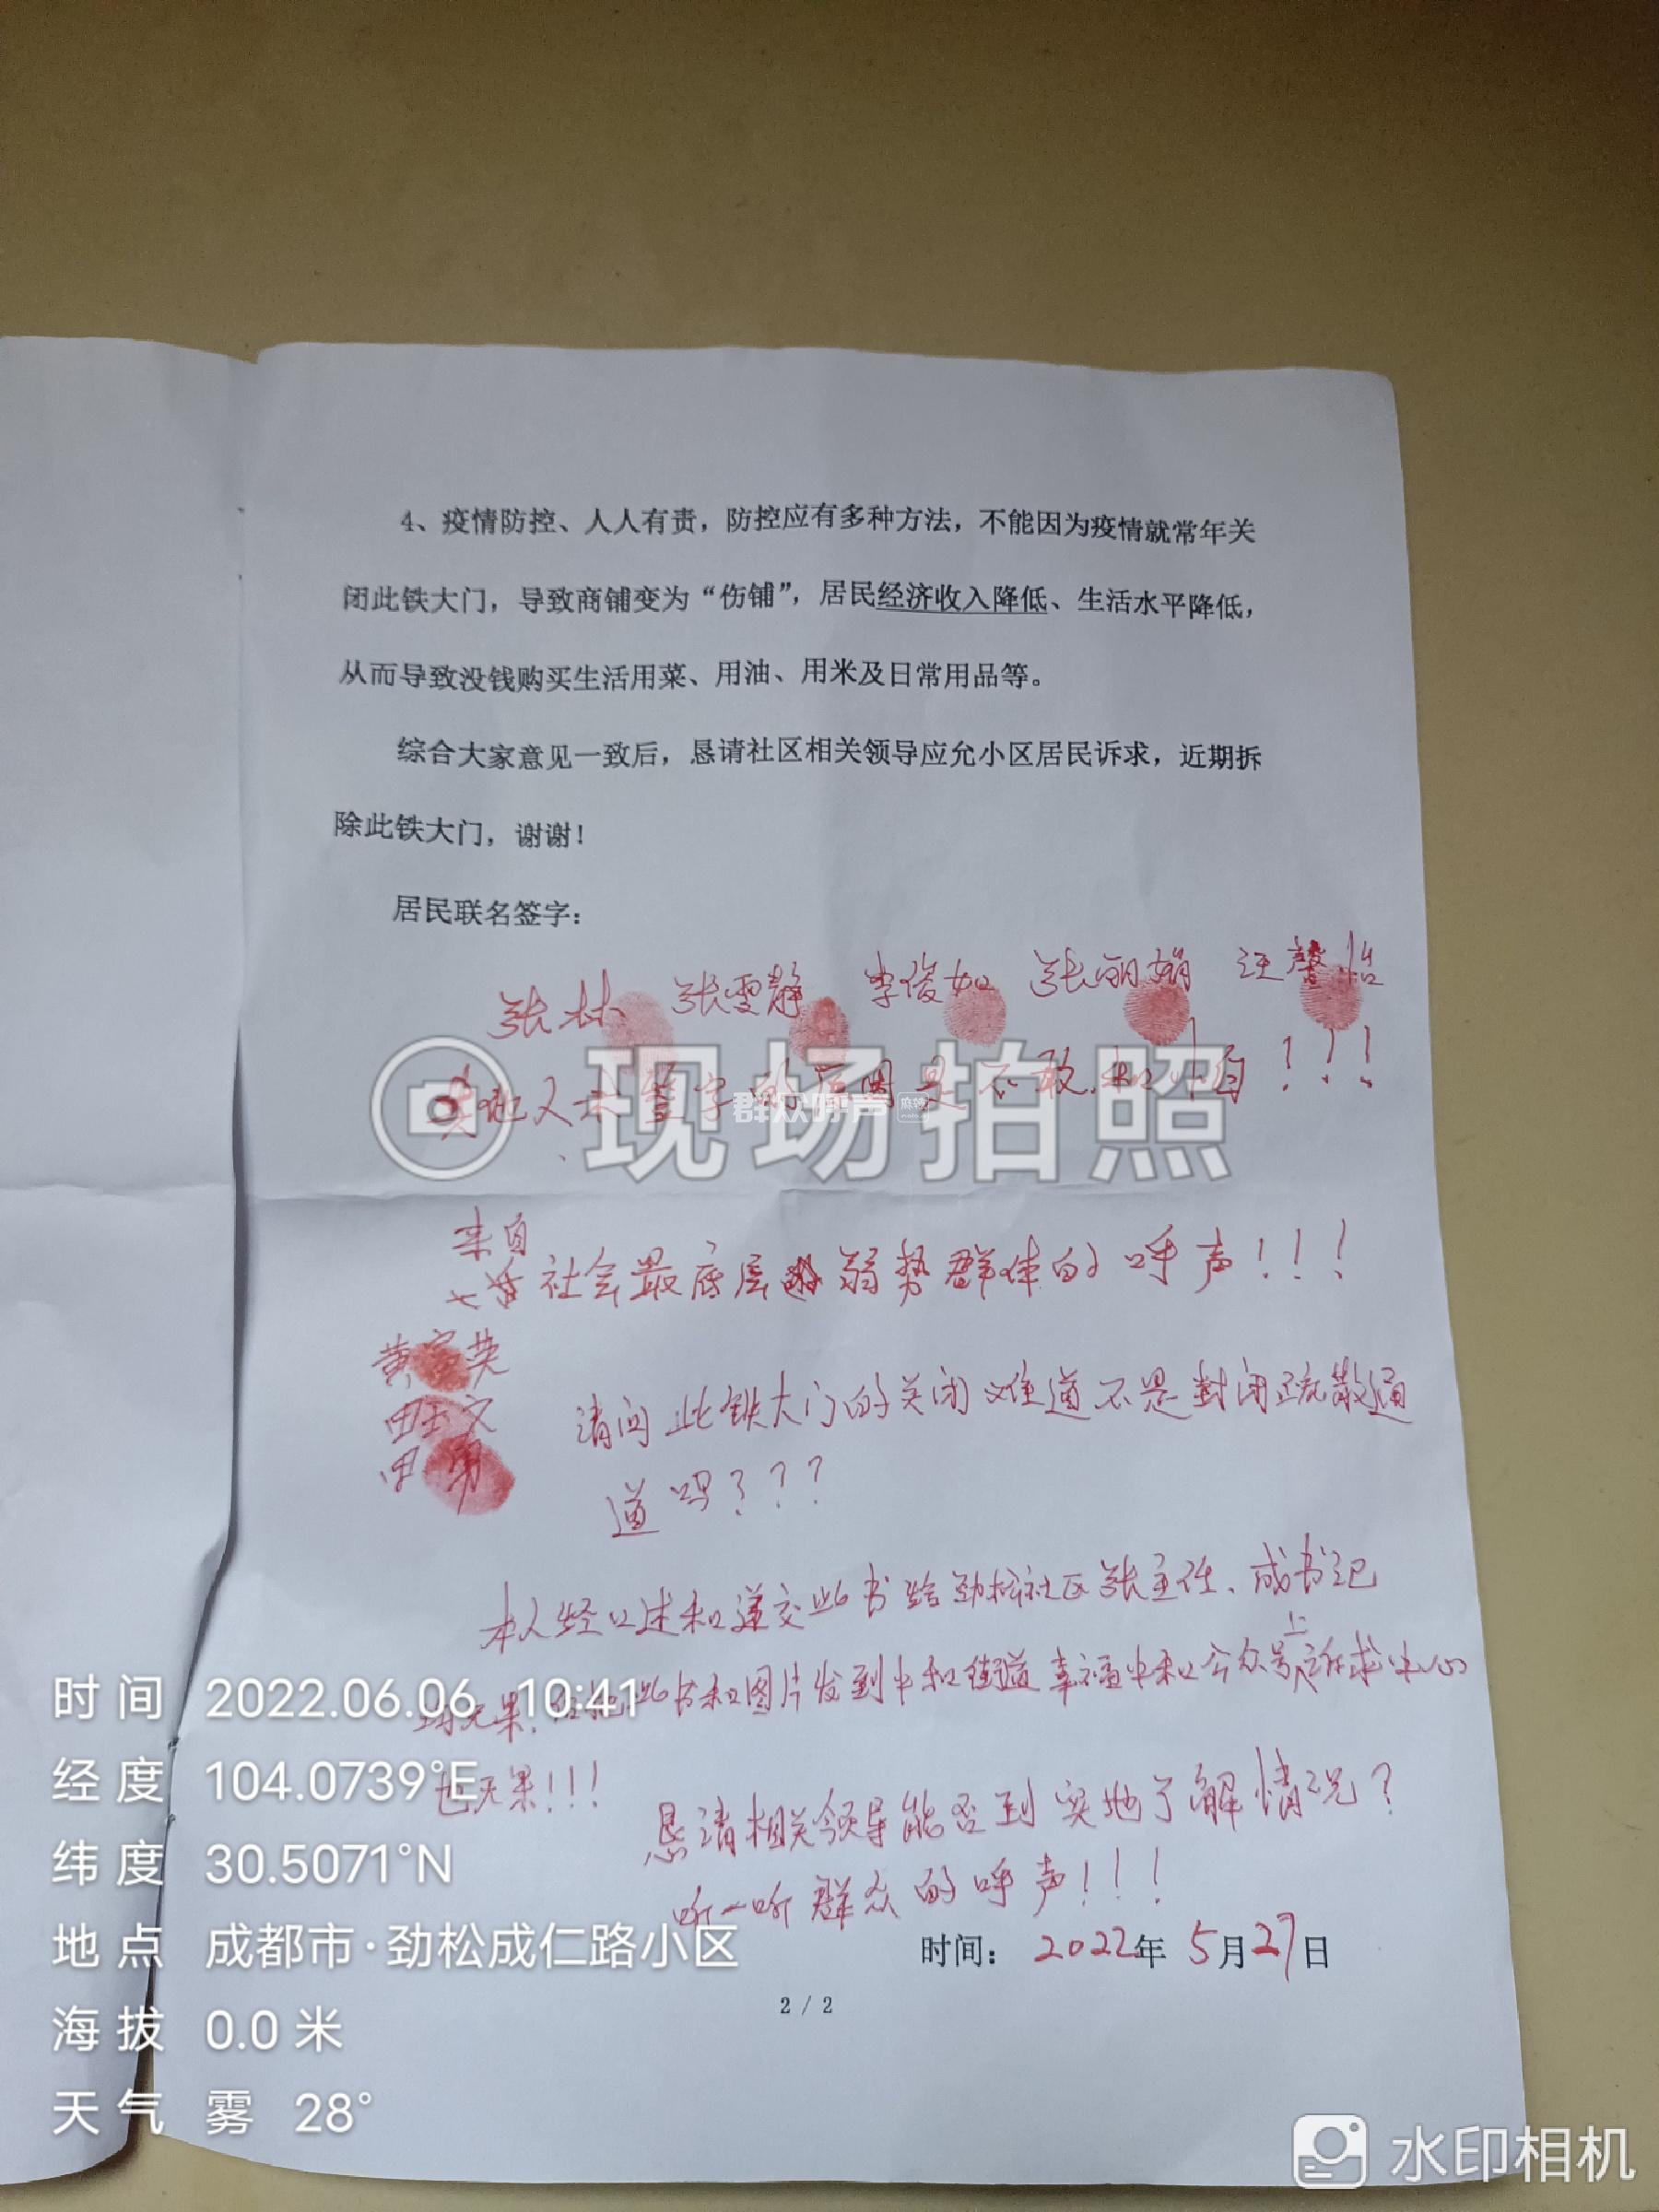 4、疫情防控、人人有责，防控应有多种方法，不能因为疫情就常年关
闭此铁大门，导致商铺变为“伤铺”，居民经济收入降低、生活水平降低，
从而导致没钱购买生活用菜、用油、用米及日常用品等。
综合大家意见一致后，恳请社区相关领导应允小区居民诉求，近期拆
除此铁大门，谢谢！
居民联名签字：
张林 张雯静 李俊如 张丽娟 汪馨怡
其他人未签字的原因是不敢和！！！
现场拍照
群众呼声 麻辣
来自
社会最底层弱势群体的呼声！！！
黄富英
田玉文
田勇
请问此铁大门的关闭难道不是封闭疏散通
道吗？？？
本人经口述和递交此书给劲松社区张主任、成书记
均无果，后把此书和图片发到中和街道幸福中和公众号上诉求中心
也无果！！！
恳请相关领导能否到实地了解情况？
听一听群众的呼声！！！
时间：2022年5月27日
2 / 2
时间 2022.06.06 10:41
经度 104.0739°E
纬度 30.5071°N
地点 成都市·劲松成仁路小区
海拔 0.0 米
天气 雾 28°
水印相机